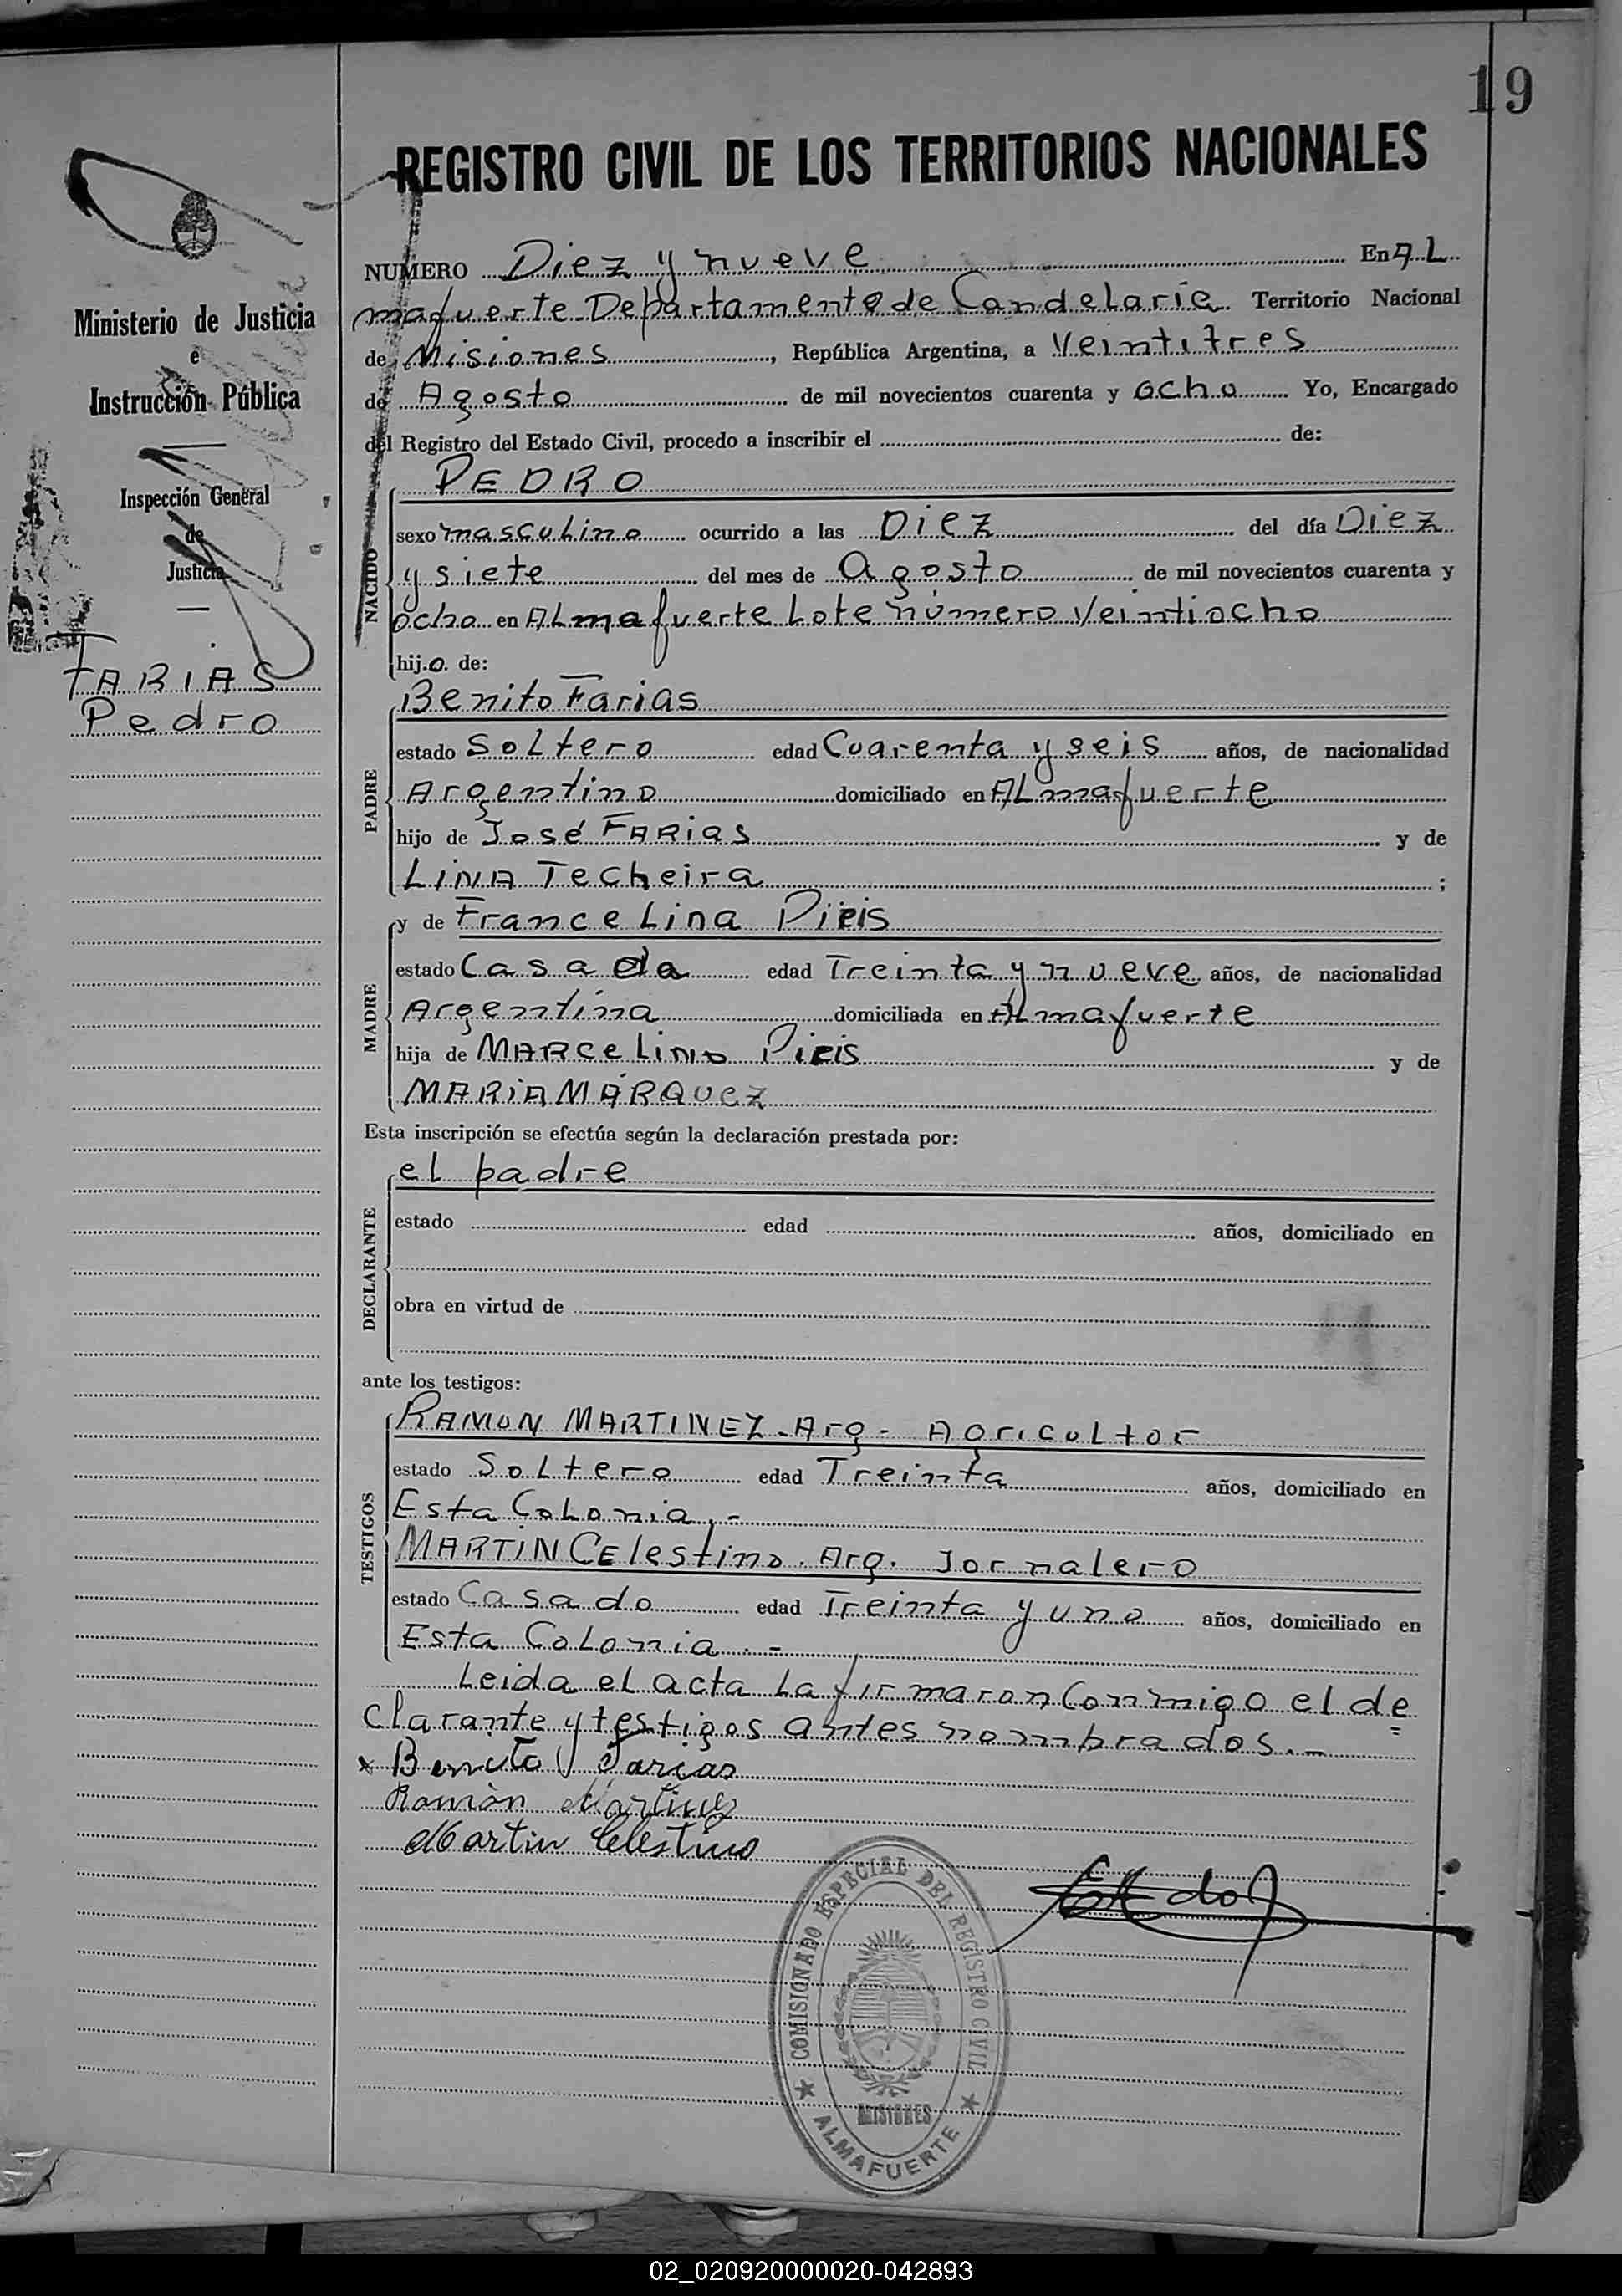 19
REGISTRO CIVIL DE LOS TERRITORIOS NACIONALES
Ministerio de Justicia
e
Instrucción Pública
Inspección General
de
Justicia
FARIAS
Pedro
NUMERO Diez y nueve En AL
mafuerte Departamento de Candelaria Territorio Nacional
de Misiones, República Argentina, a Veintitres
de Agosto de mil novecientos cuarenta y ocho Yo, Encargado
del Registro del Estado Civil, procedo a inscribir el de:
NACIDO
PEDRO
sexo masculino ocurrido a las Diez del día Diez
y siete del mes de Agosto de mil novecientos cuarenta y
ocho en ALmafuerte Lote número Veintiocho
hijo de:
PADRE
Benito Farias
estado Soltero edad Cuarenta y seis años, de nacionalidad
Argentino domiciliado en ALmafuerte
hijo de José FARias y de
LINA Techeira ;
MADRE
y de Francelina
estado Casada edad Treinta y nueve años, de nacionalidad
Argentina domiciliada en ALmafuerte
hija de MARceLino y de
MARiA MÁRQUEZ
Esta inscripción se efectúa según la declaración prestada por:
DECLARANTE
el padre
estado edad años, domiciliado en
obra en virtud de
ante los testigos:
TESTIGOS
RAMON MARTINEZ - Arg - Agricultor
estado Soltero edad Treinta años, domiciliado en
Esta Colonia.-
MARTIN CElestino. Arg. Jornalero
estado Casado edad Treinta y uno años, domiciliado en
Esta Colonia.-
Leida el acta la firmaron conmigo el de
clarante y testigos antes nombrados.-
x Benito Farias
Ramón Martinez
Martin Celestino
COMISIONADO ESPECIAL DEL REGISTRO CIVIL
MISIONES
ALMAFUERTE
02_020920000020-042893